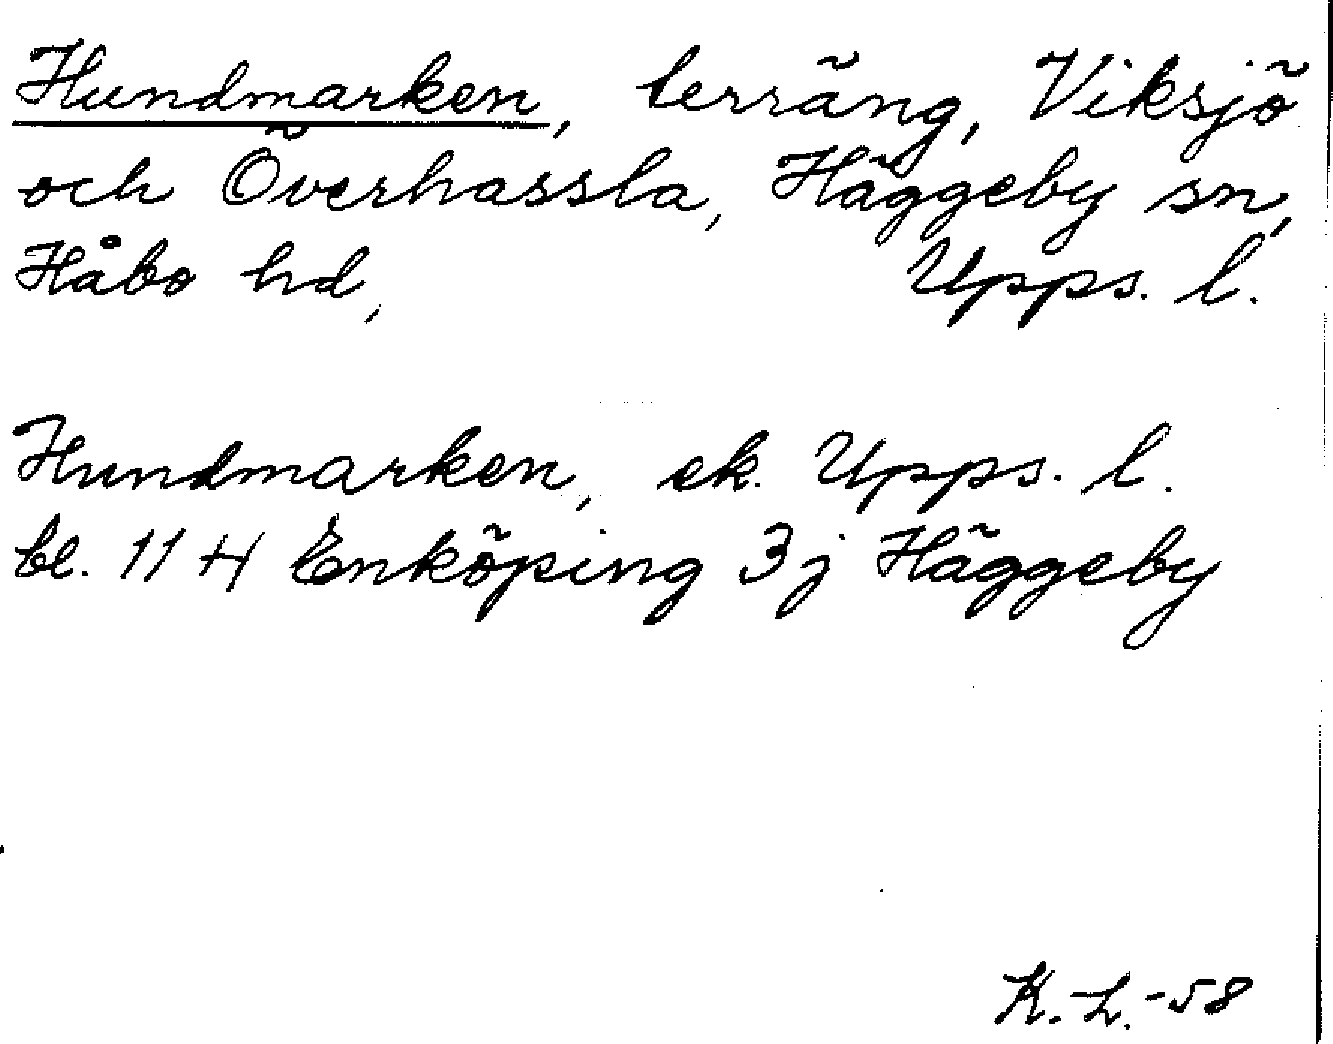 Hundmarken, terräng, Viksjö
och Överhassla, Häggeby sn,
Håbo hd, Upps. l.
Hundmarken, ek. Upps. l.
bl. 11 H Enköping 3j Häggeby
K.-L.-58